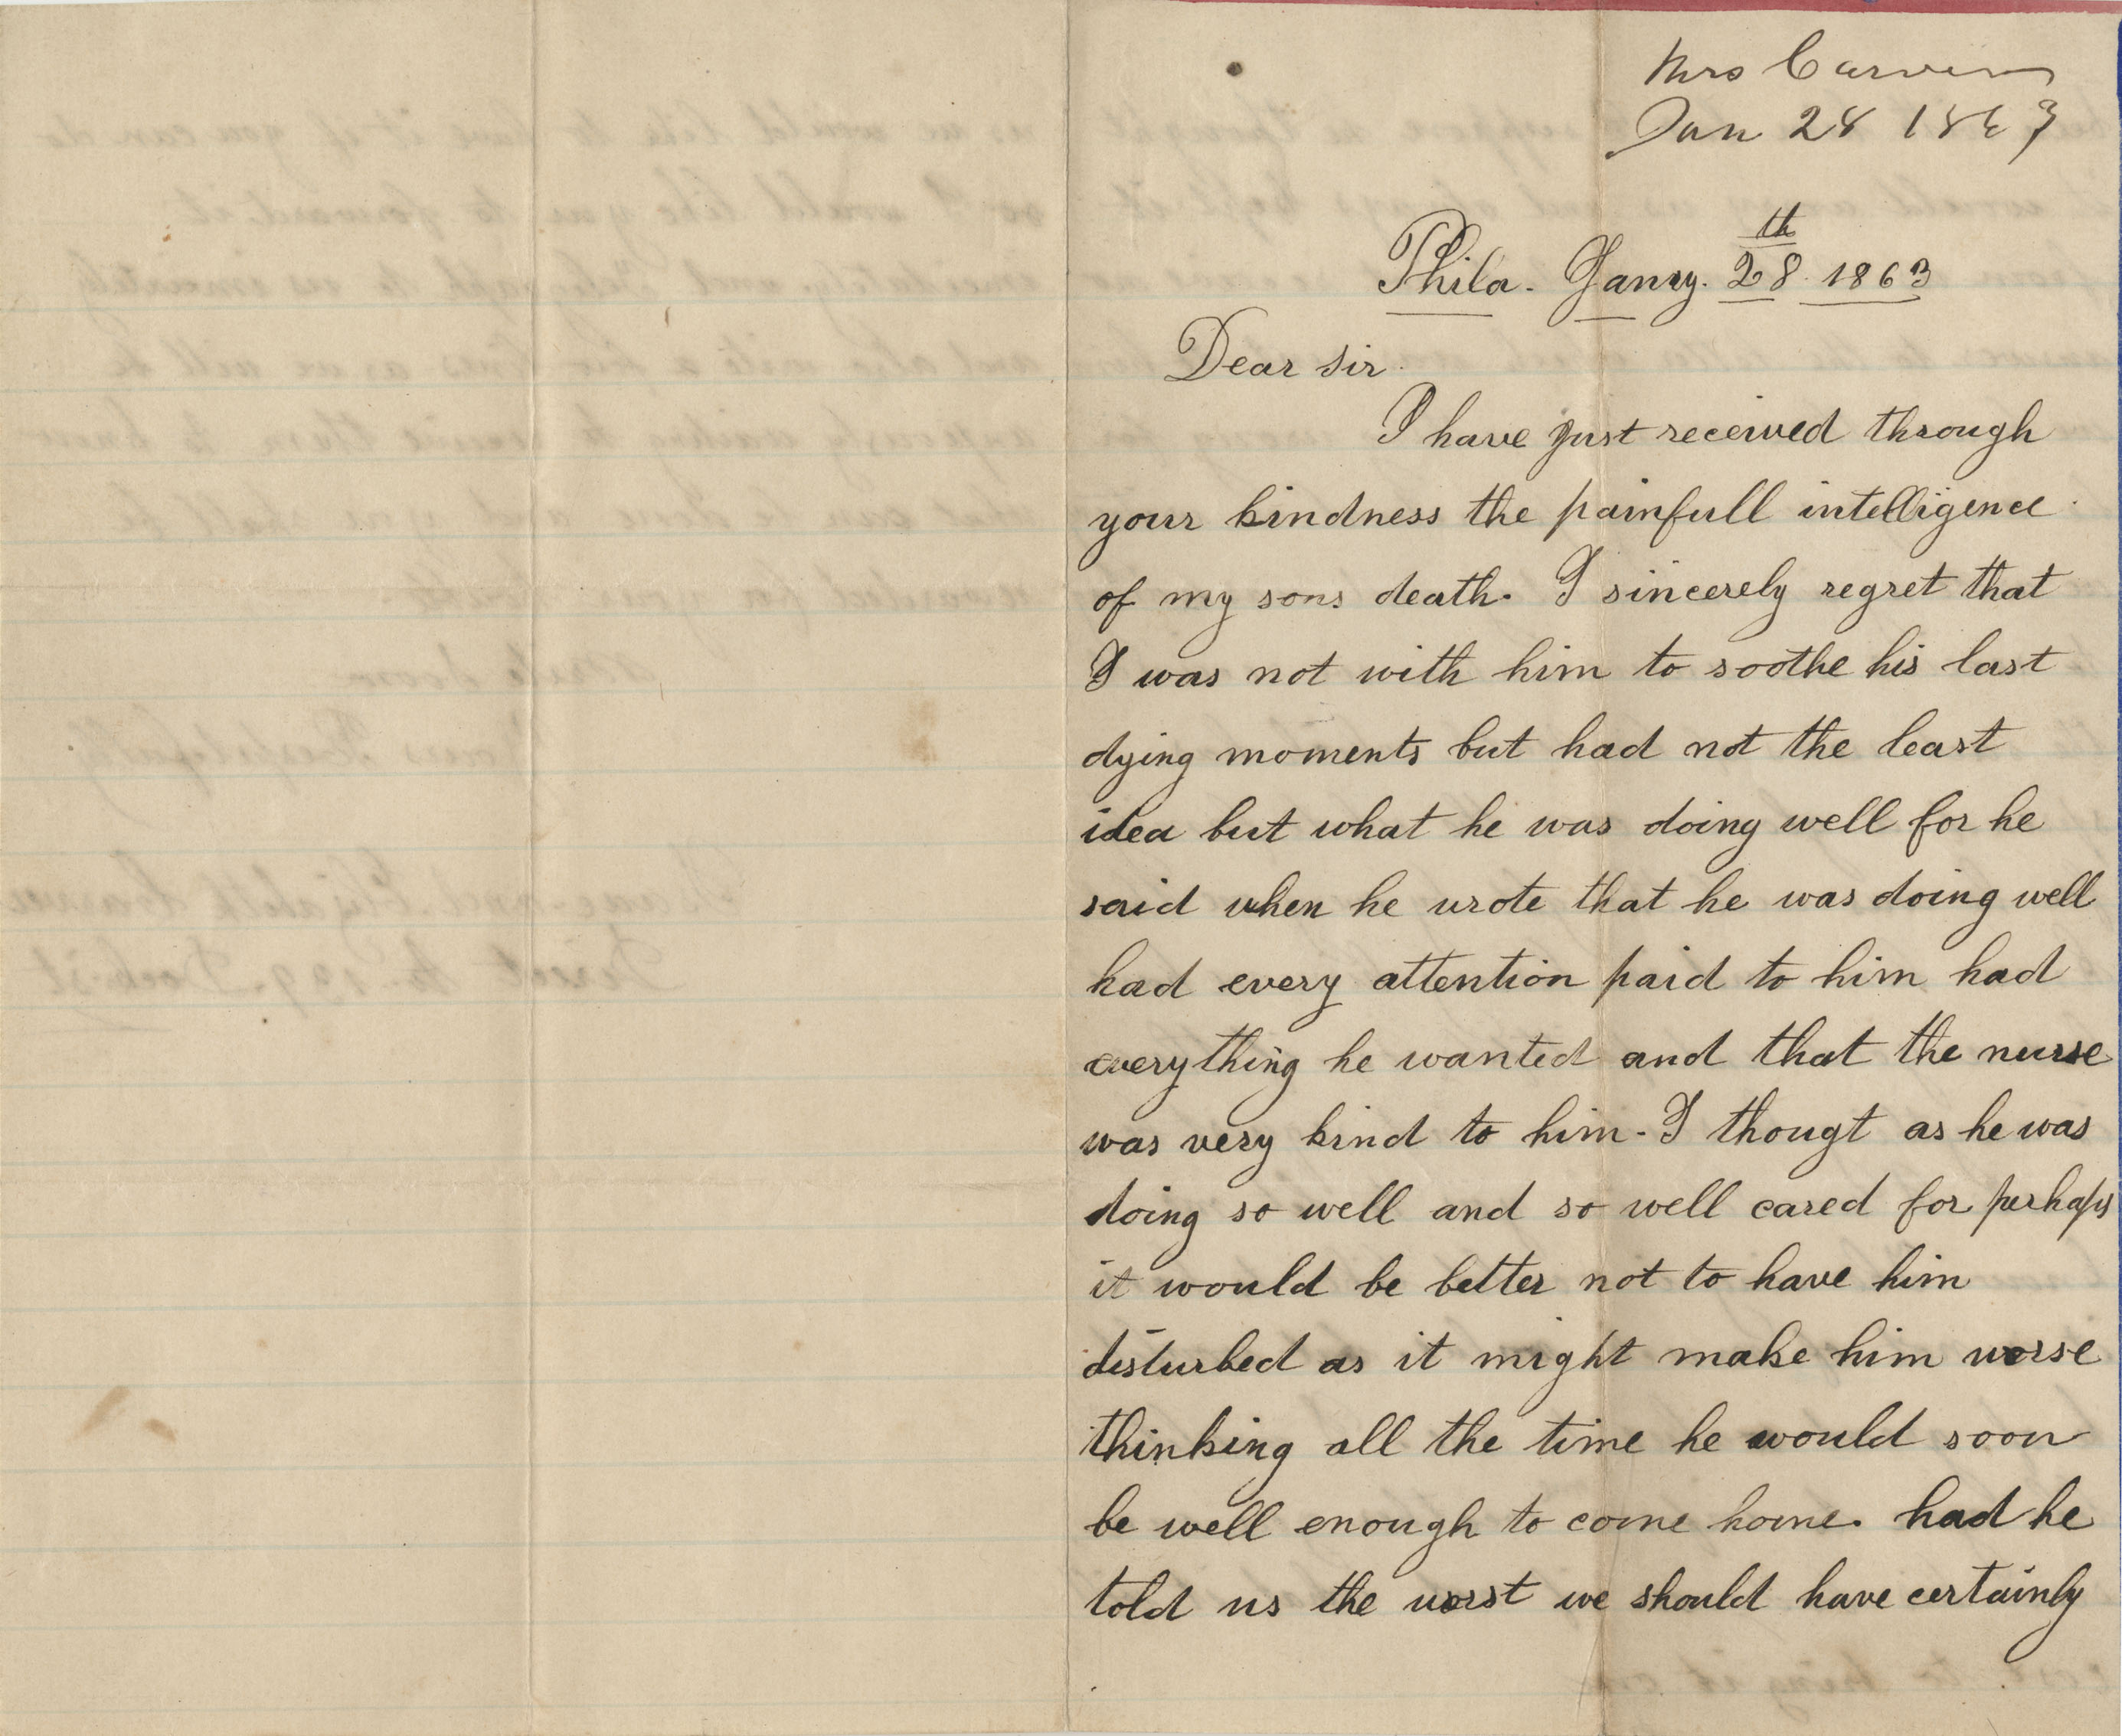 Mrs
Jan 28 1863
Phila. Janry. 28th 1863
Dear sir.
I have just received through
your kindness the painfull intelligence
of my sons death. I sincerely regret that
I was not with him to soothe his last
dying moments but had not the least
idea but what he was doing well for he
said when he wrote that he was doing well
had every attention paid to him had
everything he wanted and that the nurse
was very kind to him. I thougt as he was
doing so well and so well cared for perhaps
it would be better not to have him
disturbed as it might make him worse
thinking all the time he would soon
be well enough to come home. had he
told us the worst we should have certainly